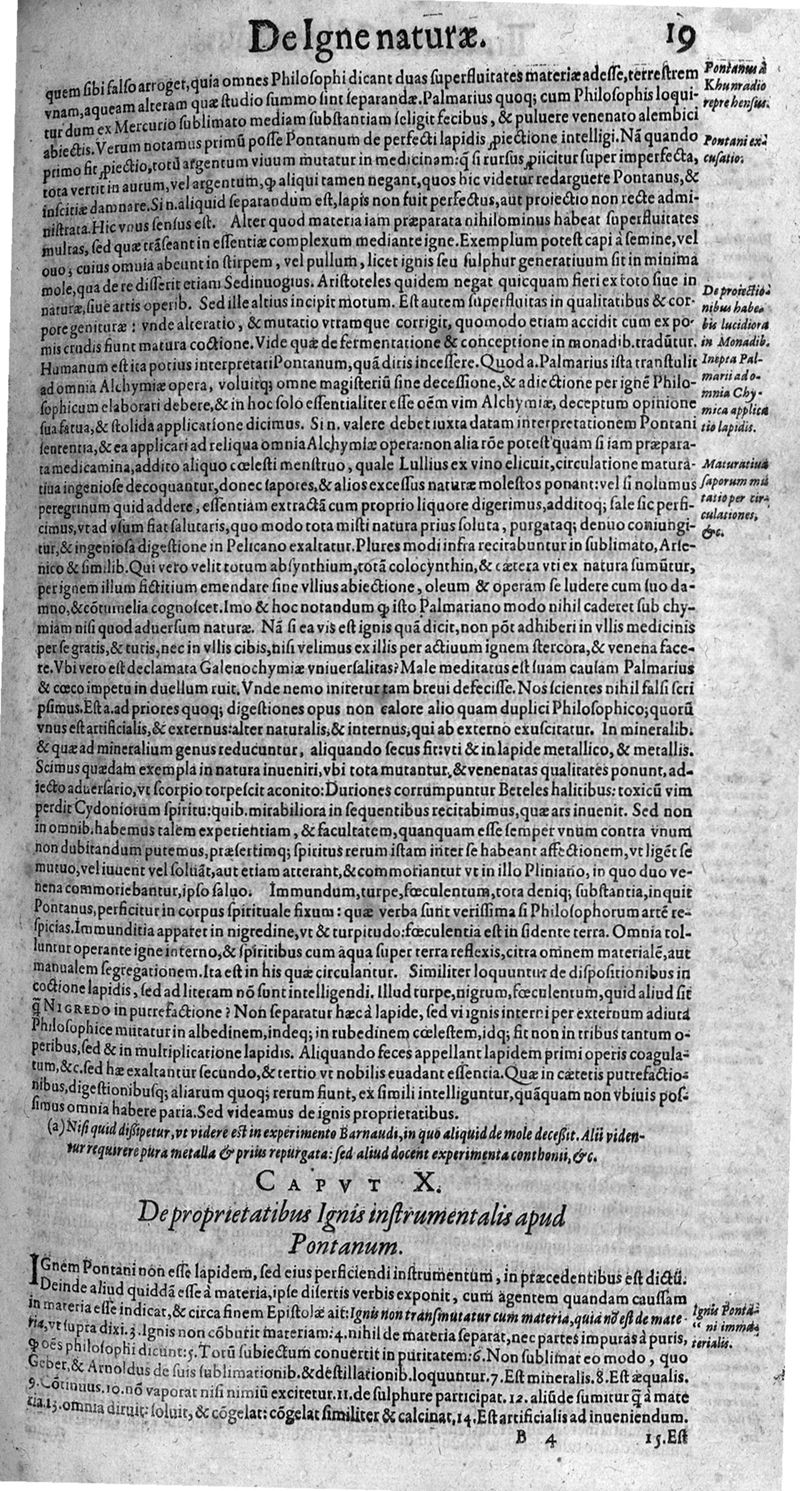 De Igne naturæ. 19
quem sibi falso arroget, quia omnes Philosophi dicant duas superfluitates materiæ adesse, terrestrem
vnam, aqueam alteram quæ studio summo sint separandæ. Palmarius quoq; cum Philosophis loqui-
tur dum ex Mercurio sublimato mediam substantiam seligit fecibus, & puluere venenato alembici
abiectis. Verum notamus primũ posse Pontanum de perfecti lapidis ꝓiectione intelligi. Nã quando
primo fit ꝓiectio, totũ argentum viuum mutatur in medicinam: q̃ si rursus ꝓiicitur super imperfecta,
tota vertit in aurum, vel argentum, ꝙ aliqui tamen negant, quos hic videtur redarguere Pontanus, &
inscitiæ damnare. Si n. aliquid separandum est, lapis non fuit perfectus, aut proiectio non recte admi-
nistrata. Hic vnus sensus est. Alter quod materia iam præparata nihilominus habeat superfluitates
multas, sed quæ trãseant in essentiæ complexum mediante igne. Exemplum potest capi à semine, vel
ouo, cuius omnia abeunt in stirpem, vel pullum, licet ignis seu sulphur generatiuum sit in minima
mole, qua de re disserit etiam Sediuogius. Aristoteles quidem negat quicquam fieri ex toto siue in
naturæ, siue artis operib. Sed ille altius incipit motum. Est autem superfluitas in qualitatibus & cor-
pore genituræ: vnde alteratio, & mutatio vtramque corrigit, quomodo etiam accidit cum ex po-
mis crudis fiunt matura coctione. Vide quæ de fermentatione & conceptione in monadib. tradũtur.
Humanum est ita potius interpretari Pontanum, quã diris incessere. Quod a. Palmarius ista transtulit
ad omnia Alchymiæ opera, voluitq; omne magisteriũ sine decessione, & adiectione per ignẽ Philo-
sophicum elaborari debere, & in hoc solo essentialiter esse oẽm vim Alchymiæ, deceptum opinione
sua fatua, & stolida applicatione dicimus. Si n. valere debet iuxta datam interpretationem Pontani
sententia, & ea applicari ad reliqua omnia Alchymiæ opera: non alia rõe potest quàm si iam præpara-
ta medicamina, addito aliquo cœlesti menstruo, quale Lullius ex vino elicuit, circulatione matura-
tiua ingeniose decoquantur, donec sapores, & alios excessus naturæ molestos ponant: vel si nolumus
peregrinum quid addere, essentiam extractã cum proprio liquore digerimus, additoq; sale sic perfi-
cimus, vt ad vsum fiat salutaris, quo modo tota misti natura prius soluta, purgataq; denuo coniungi-
tur, & ingeniosa digestione in Pelicano exaltatur. Plures modi infra recitabuntur in sublimato, Arse-
nico & similib. Qui vero velit totum absynthium, totã colocynthin, & cætera vti ex natura sumũtur,
per ignem illum fictitium emendare sine vllius abiectione, oleum & operam se ludere cum suo da-
mno, & cõtumelia cognoscet. Imo & hoc notandum ꝙ isto Palmariano modo nihil caderet sub chy-
miam nisi quod aduersum naturæ. Nã si ea vis est ignis quã dicit, non põt adhiberi in vllis medicinis
per se gratis, & tutis, nec in vllis cibis, nisi velimus ex illis per actiuum ignem stercora, & venena face-
re. Vbi vero est declamata Galenochymiæ vniuersalitas? Male meditatus est suam causam Palmarius
& cœco impetu in duellum ruit. Vnde nemo miretur tam breui defecisse. Nos scientes nihil falsi scri
psimus. Est a. ad priores quoq; digestiones opus non calore alio quam duplici Philosophico; quorũ
vnus est artificialis, & externus: alter naturalis, & internus, qui ab externo exuscitatur. In mineralib.
& quæ ad mineralium genus reducuntur, aliquando secus fit: vti & in lapide metallico, & metallis.
Scimus quædam exempla in natura inueniri, vbi tota mutantur, & venenatas qualitates ponunt, ad-
iecto aduersario, vt scorpio torpescit aconito: Duriones corrumpuntur Beteles halitibus: toxicũ vim
perdit Cydoniorum spiritu: quib. mirabiliora in sequentibus recitabimus, quæ ars inuenit. Sed non
in omnib. habemus talem experientiam, & facultatem, quanquam esse semper vnum contra vnum
non dubitandum putemus, præsertimq; spiritus rerum istam inter se habeant affectionem, vt ligẽt se
mutuo, vel iuuent vel soluãt, aut etiam atterant, & commoriantur vt in illo Pliniario, in quo duo ve-
nena commoriebantur, ipso saluo. Immundum, turpe, fœculentum, tota deniq; substantia, inquit
Pontanus, perficitur in corpus spirituale fixum: quæ verba sunt verissima si Philosophorum artẽ re-
spicias. Immunditia apparet in nigredine, vt & turpitudo: fœculentia est in sidente terra. Omnia tol-
luntur operante igne interno, & spiritibus cum aqua super terra reflexis, citra omnem materialẽ, aut
manualem segregationem. Ita est in his quæ circulantur. Similiter loquuntur de dispositionibus in
coctione lapidis, sed ad literam nõ sunt intelligendi. Illud turpe, nigrum, fœculentum, quid aliud sit
q̃ NIGREDO in putrefactione? Non separatur hæc à lapide, sed vi ignis interni per externum adiuta
Philosophice mutatur in albedinem, indeq; in rubedinem cœlestem, idq; fit non in tribus tantum o-
peribus, sed & in multiplicatione lapidis. Aliquando feces appellant lapidem primi operis coagula-
tum, &c. sed hæ exaltantur secundo, & tertio vt nobilis euadant essentia. Quæ in cæteris putrefactio-
nibus, digestionibusq; aliarum quoq; rerum fiunt, ex simili intelliguntur, quãquam non vbiuis pos-
simus omnia habere paria. Sed videamus de ignis proprietatibus.
(a) Nisi quid dissipetur, vt videre est in experimento Barnaudi, in quo aliquid de mole decessit. Alii viden-
tur requirere pura metalla & prius repurgata: sed aliud docent experimenta conthonii, &c.
CAPVT X.
De proprietatibus Ignis instrumentalis apud
Pontanum.
IGnem Pontani non esse lapidem, sed eius perficiendi instrumentum, in præcedentibus est dictũ.
Deinde aliud quiddã esse à materia, ipse disertis verbis exponit, cum agentem quandam caussam
in materia esse indicat, & circa finem Epistolæ ait: Ignis non transmutatur cum materia, quia nõ est de mate-
ria, vt supra dixi. 3. Ignis non cõburit materiam: 4. nihil de materia separat, nec partes impuras à puris,
ꝙ oẽs philosophi dicunt: 5. Totũ subiectum conuertit in puritatem: 6. Non sublimat eo modo, quo
Geber, & Arnoldus de suis sublimationib. & destillationib. loquuntur. 7. Est mineralis. 8. Est æqualis.
9. Cõtinuus. 10. nõ vaporat nisi nimiũ excitetur. 11. de sulphure participat. 12. aliũde sumitur q̃ à mate
ria. 13. omnia diruit: soluit, & cõgelat: cõgelat similiter & calcinat, 14. Est artificialis ad inueniendum.
B 4 15. Est
Pontanus à
Khunradio
reprehensus.
Pontani ex-
cusatio.
De proiectio-
nibus habe-
bis lucidiora
in Monadib.
Inepta Pal-
marii ad o-
mnia Chy-
mica applica
tio lapidis.
Maturatiua
saporum mu
tatio per cir-
culationes,
&c.
Ignis Ponta-
ni imma-
terialis.